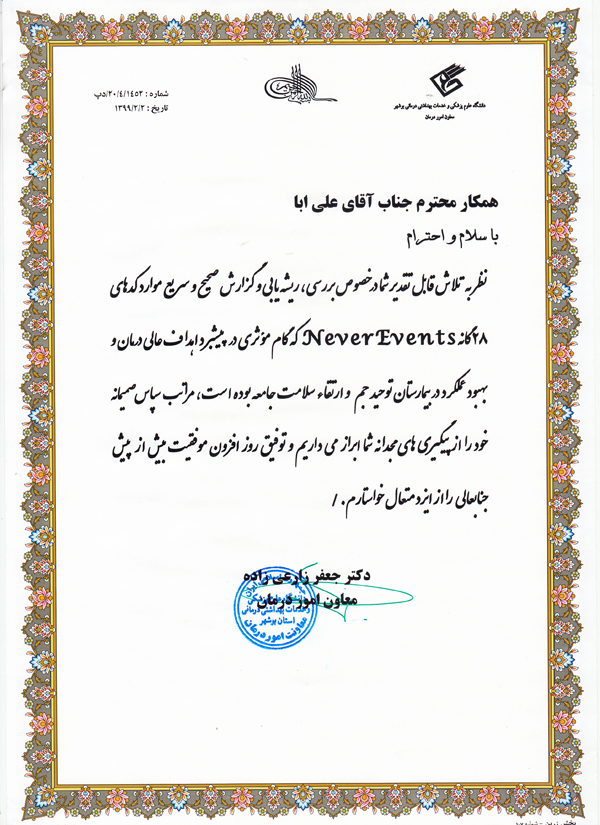 دانشگاه علوم پزشکی و خدمات بهداشتی درمانی بوشهر
معاون امور درمان
شماره : ۲۰/۴/۱۴۵۲/دپ
تاریخ : ۱۳۹۹/۲/۲
همکار محترم جناب آقای علی ابا
با سلام و احترام
نظر به تلاش قابل تقدیر شما در خصوص بررسی، ریشه یابی و گزارش صحیح و سریع موارد کدهای
۲۸ گانه NeverEvents که گام مؤثری در پیشبرد اهداف عالی درمان و
بهبود عملکرد در بیمارستان توحید جم و ارتقاء سلامت جامعه بوده است، مراتب سپاس صمیمانه
خود را از پیگیری های مجدانه شما ابراز می داریم و توفیق روز افزون موفقیت بیش از پیش
جنابعالی را از ایزد متعال خواستارم. /
دکتر جعفر زارعی زاده
معاون امور درمان
و خدمات بهداشتی درمانی
استان بوشهر
معاونت امور درمان